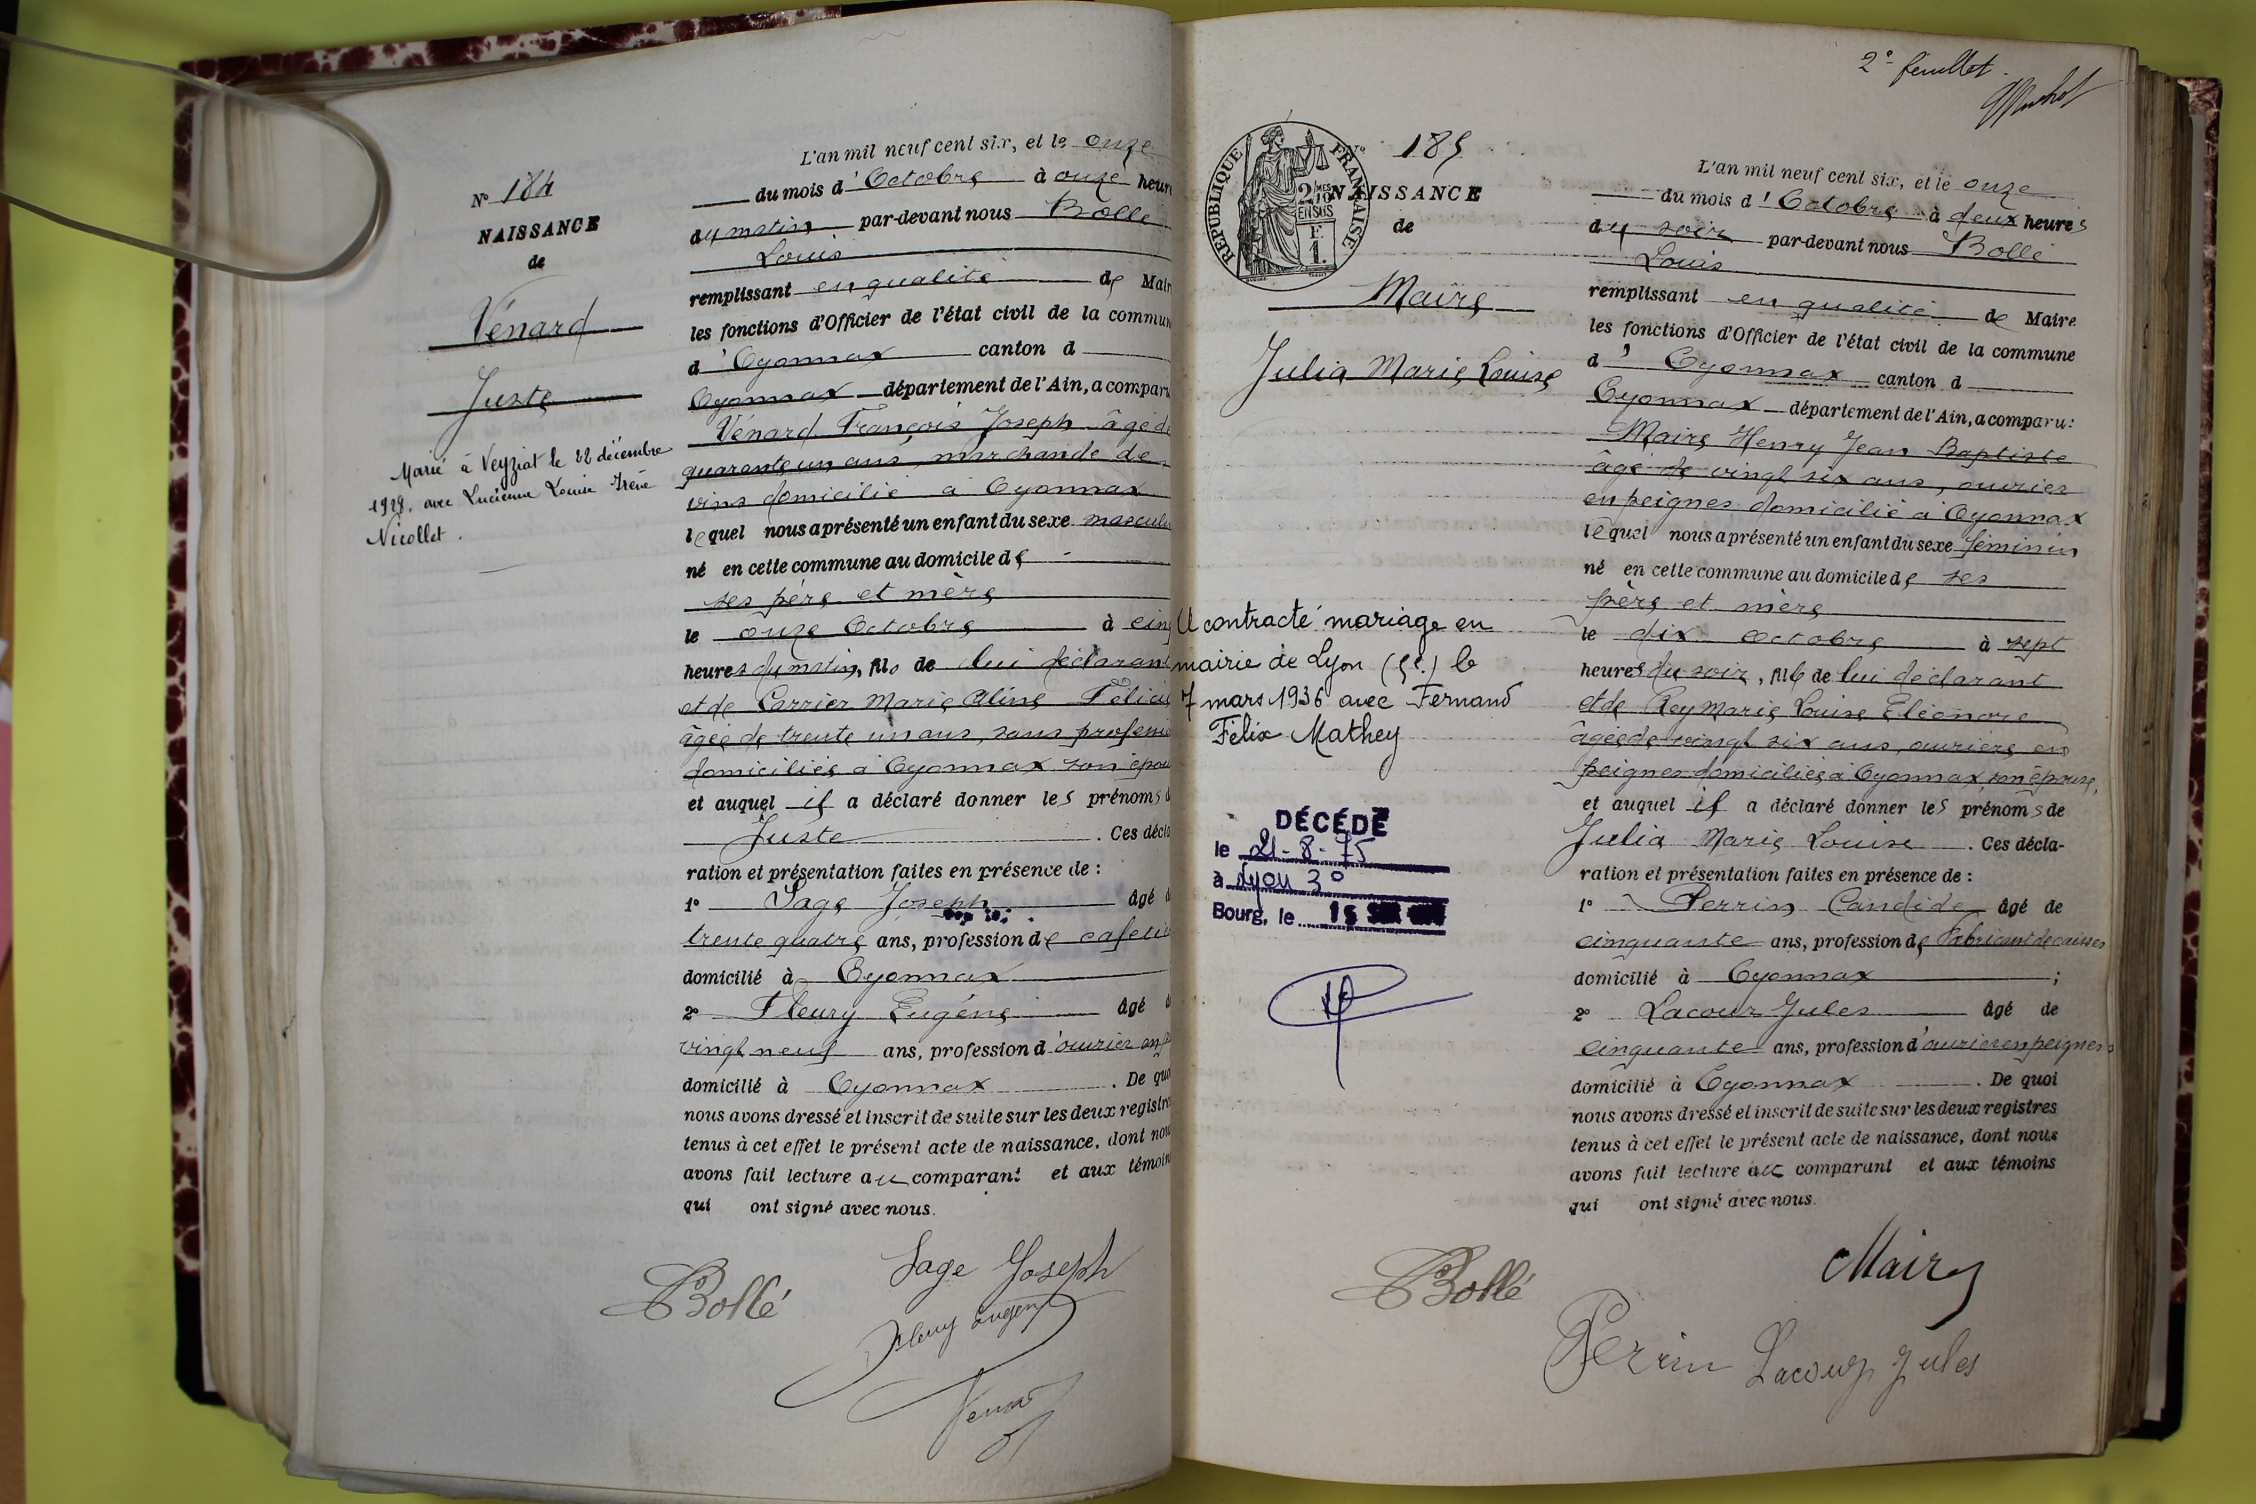 N° 184
NAISSANCE
de
Vénard
Juste
Marié à Veyziat le 22 décembre
1928, avec Lucienne Louise Irène
Nicollet.
L'an mil neuf cent six, et le onze
du mois d'Octobre à onze heure
du matin par-devant nous Bollé
Louis
remplissant en qualité de Mair
les fonctions d'Officier de l'état civil de la commun
d'Oyonnax canton d
Oyonnax département de l'Ain, a comparu
Vénard François Joseph âgé de
quarante un ans, marchande de
vins domicilié à Oyonnax
lequel nous a présenté un enfant du sexe masculi
né en cette commune au domicile de
ses père et mère
le onze Octobre à cinq
heures du matin, fils de lui déclarant
et de Carrier Marie Aline Félicie
âgée de trente un ans, sans professi
domiciliée à Oyonnax son épou
et auquel il a déclaré donner les prénoms d
Juste. Ces décla
ration et présentation faites en présence de :
1° Sage Joseph âgé d
trente quatre ans, profession de cafeti
domicilié à Oyonnax
2° Fleury Eugène âgé d
vingt neuf ans, profession d'ouvrier en p
domicilié à Oyonnax. De quo
nous avons dressé et inscrit de suite sur les deux registre
tenus à cet effet le présent acte de naissance, dont nou
avons fait lecture au comparant et aux témoin
qui ont signé avec nous.
Sage Joseph
Bollé
Fleury Eugène
Venard
2e feuillet.
RÉPUBLIQUE FRANÇAISE
2/10MES
EN SUS
F.
1.
N° 185
NAISSANCE
de
Maire
Julia Marie Louise
A contracté mariage en
mairie de Lyon (5e.) le
7 mars 1936 avec Fernand
Félix Mathey
DÉCÉDÉE
le 21-8-75
à Lyon 3°
Bourg, le 15
L'an mil neuf cent six, et le onze
du mois d'Octobre à deux heures
du soir par-devant nous Bollé
Louis
remplissant en qualité de Maire
les fonctions d'Officier de l'état civil de la commune
d'Oyonnax canton d
Oyonnax département de l'Ain, a comparu:
Maire Henry Jean Baptiste
âgé de vingt six ans, ouvrier
en peignes domicilié à Oyonnax
lequel nous a présenté un enfant du sexe féminin
né en cette commune au domicile de ses
père et mère
le dix octobre à sept
heures du soir, fille de lui déclarant
et de Rey Marie Louise Eléonore
âgée de vingt six ans, ouvrière en
peignes domiciliée à Oyonnax, son épouse,
et auquel il a déclaré donner les prénoms de
Julia Marie Louise. Ces décla-
ration et présentation faites en présence de :
1° Perrin Candide âgé de
cinquante ans, profession de fabricant de caisses
domicilié à Oyonnax ;
2° Lacour Jules âgé de
cinquante ans, profession d'ouvrier en peignes
domicilié à Oyonnax. De quoi
nous avons dressé et inscrit de suite sur les deux registres
tenus à cet effet le présent acte de naissance, dont nous
avons fait lecture au comparant et aux témoins
qui ont signé avec nous.
Maire
Bollé
Perrin Lacour Jules